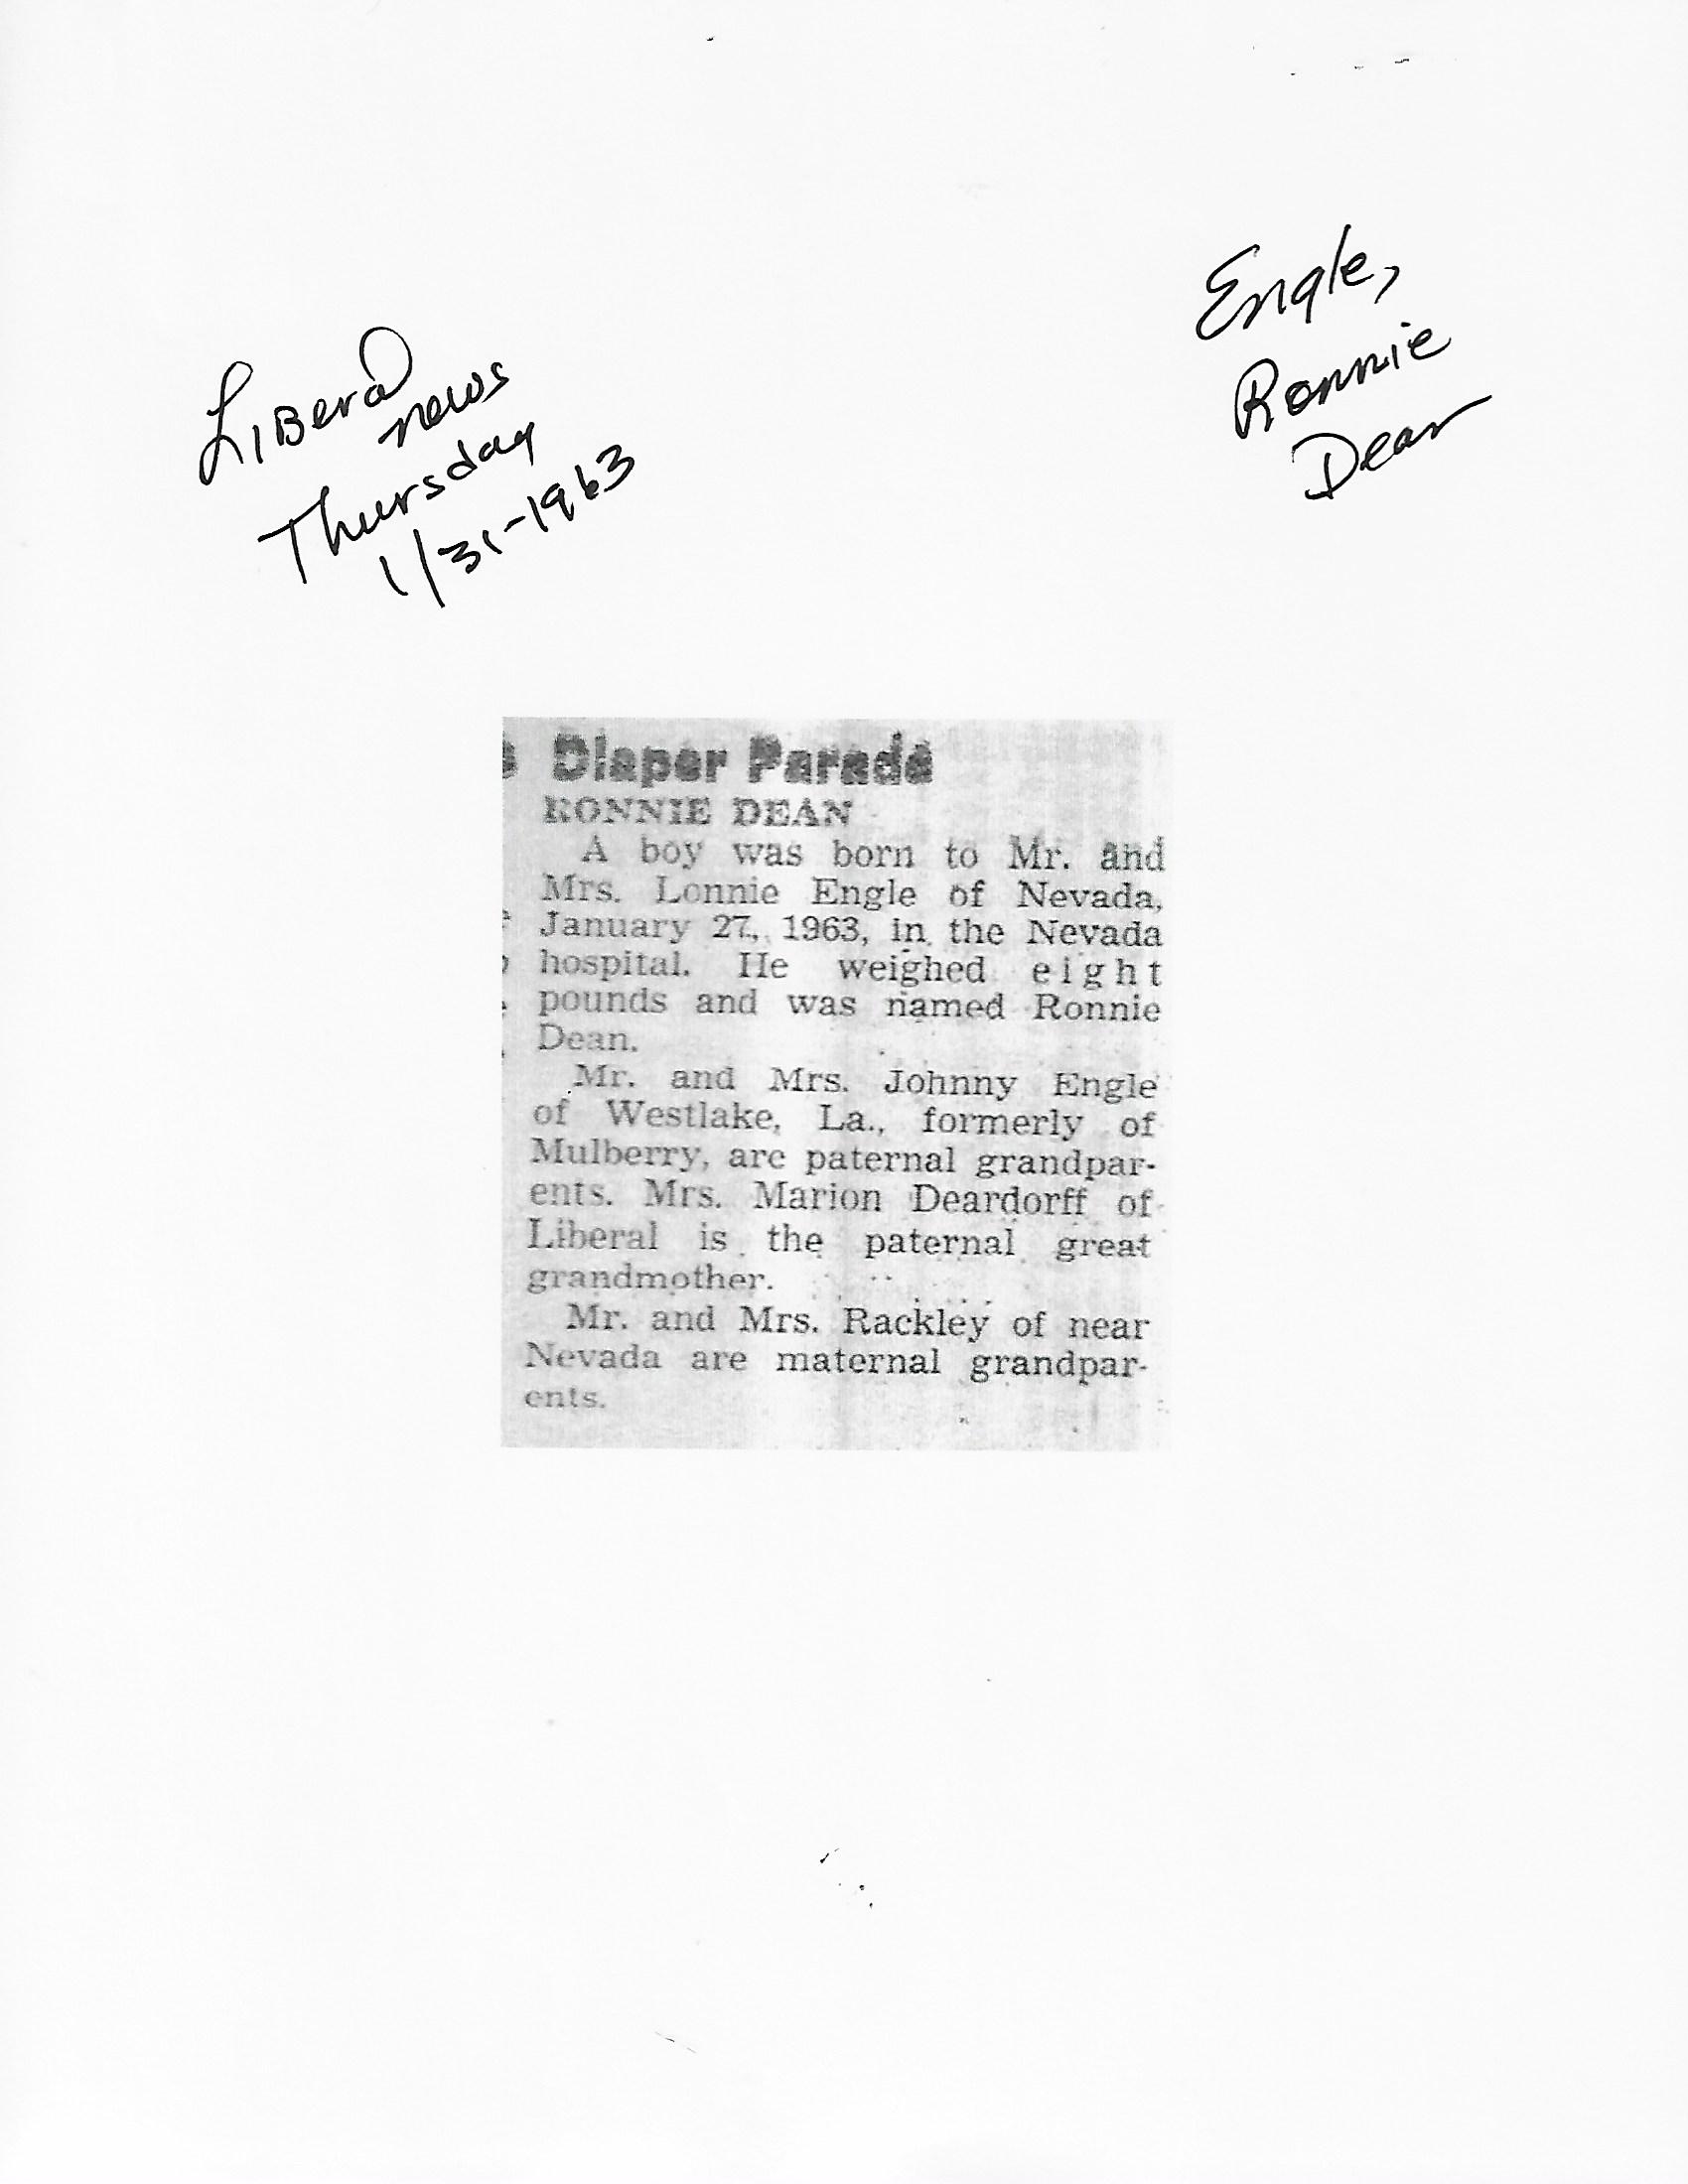 Engle,
Ronnie
Dean
Liberal
news
Thursday
1/31-1963
Diaper Parade
RONNIE DEAN
A boy was born to Mr. and
Mrs. Lonnie Engle of Nevada,
January 27, 1963, in the Nevada
hospital. He weighed eight
pounds and was named Ronnie
Dean.
Mr. and Mrs. Johnny Engle
of Westlake, La., formerly of
Mulberry, are paternal grandpar-
ents. Mrs. Marion Deardorff of
Liberal is the paternal great
grandmother.
Mr. and Mrs. Rackley of near
Nevada are maternal grandpar-
ents.